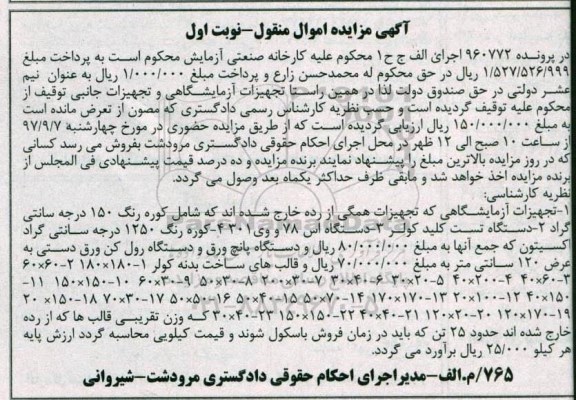 آگهی مزایده اموال منقول-نوبت اول
در پرونده ۹۶۰۷۷۲ اجرای الف ج ح۱ محکوم علیه کارخانه صنعتی آزمایش محکوم است به پرداخت مبلغ
۱/۵۲۷/۵۲۶/۹۹۹ ریال در حق محکوم له محمدحسن زارع و پرداخت مبلغ ۱/۰۰۰/۰۰۰ ریال به عنوان نیم
عشر دولتی در حق صندوق دولت لذا در همین راستا تجهیزات آزمایشگاهی و تجهیزات جانبی توقیف از
محکوم علیه توقیف گردیده است و حسب نظریه کارشناس رسمی دادگستری که مصون از تعرض مانده است
به مبلغ ۱۵۰/۰۰۰/۰۰۰ ریال ارزیابی گردیده است که از طریق مزایده حضوری در مورخ چهارشنبه ۹۷/۹/۷
از ساعت ۱۰ صبح الی ۱۲ ظهر در محل اجرای احکام حقوقی دادگستری مرودشت بفروش می رسد کسانی
که در روز مزایده بالاترین مبلغ را پیشنهاد نمایند برنده مزایده و ده درصد قیمت پیشنهادی فی المجلس از
برنده مزایده اخذ خواهد شد و مابقی ظرف حداکثر یکماه بعد وصول می گردد.
نظریه کارشناسی:
۱-تجهیزات آزمایشگاهی که تجهیزات همگی از رده خارج شده اند که شامل کوره رنگ ۱۵۰ درجه سانتی
گراد ۲-دستگاه تست کلید کولر ۳-دستگاه اس ۷۸ و وی ۳۰۱ ۴-کوره رنگ ۱۲۵۰ درجه سانتی گراد
اکسیتون که جمع آنها به مبلغ ۸۰/۰۰۰/۰۰۰ ریال و دستگاه پانچ ورق و دستگاه رول کن ورق دستی به
عرض ۱۲۰ سانتی متر به مبلغ ۷۰/۰۰۰/۰۰۰ ریال و قالب های ساخت بدنه کولر ۱-۱۸۰×۱۸۰ ۲-۶۰×۶۰
خارج شده اند حدود ۲۵ تن که باید در زمان فروش باسکول شوند و قیمت کیلویی محاسبه گردد ارزش پایه
هر کیلو ۲۵/۰۰۰ ریال برآورد می گردد.
۷۶۵/م.الف-مدیراجرای احکام حقوقی دادگستری مرودشت-شیروانی